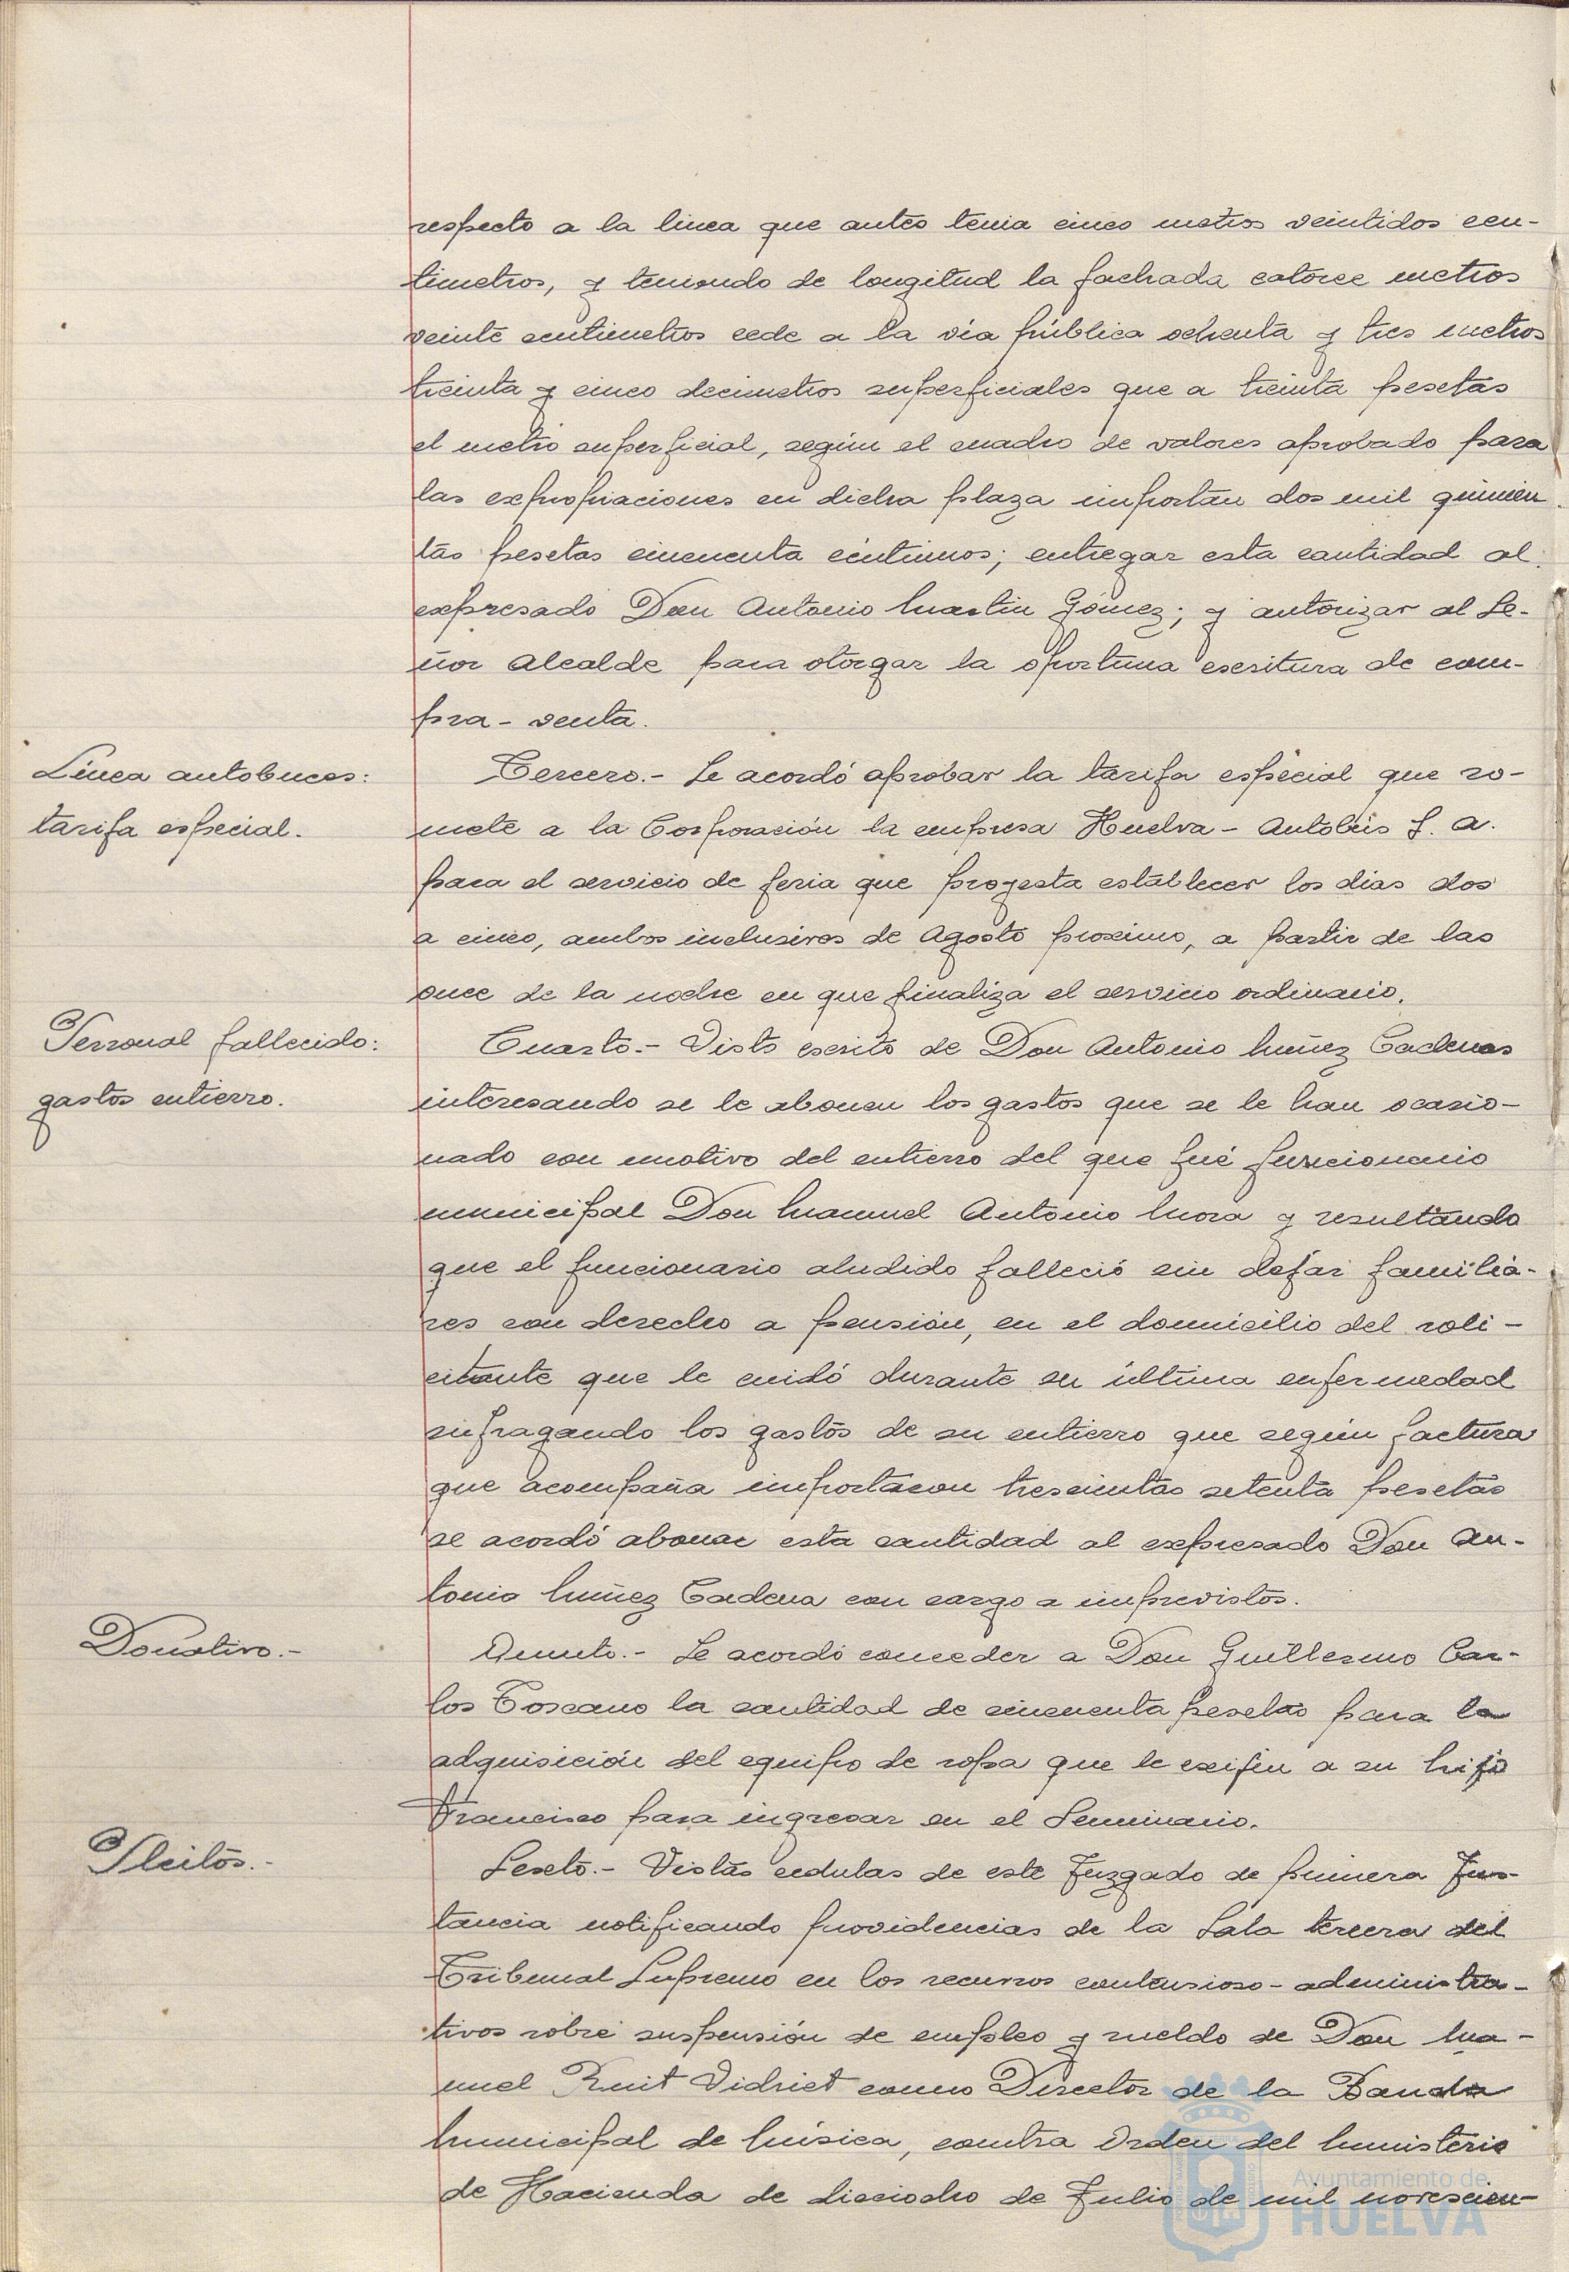 respecto a la linea que antes tenia cinco metros veintidos cen-
timetros, y teniendo de longitud la fachada catorce metros
veinte centimetros cede a la vía pública ochenta y tres metros
treinta y cinco decimetros superficiales que a treinta pesetas
el metro superficial, según el cuadro de valores aprobado para
las expropiaciones en dicha plaza importan dos mil quinien
tas pesetas cincuenta céntimos; entregar esta cantidad al
expresado Don Antonio Martin Gómez; y autorizar al Se-
ñor Alcalde para otorgar la oportuna escritura de com-
pra-venta.
Línea autobuces:
tarifa especial.
Tercero.- Se acordó aprobar la tarifa especial que so-
mete a la Corporación la empresa Huelva-Autobús S. A.
para el servicio de feria que proyecta establecer los dias dos
a cinco, ambos inclusives de Agosto proximo, a partir de las
once de la noche en que finaliza el servicio ordinario.
Personal fallecido:
gastos entierro.
Cuarto.- Visto escrito de Don Antonio Muñez Cadenas
interesando se le abonen los gastos que se le han ocasio-
nado con motivo del entierro del que fué funcionario
municipal Don Manuel Antonio Mora y resultando
que el funcionario aludido falleció sin dejar familia-
res con derecho a pensión, en el domicilio del soli-
citante que le cuidó durante su última enfermedad
sufragando los gastos de su entierro que según factura
que acompaña importaron trescientas setenta pesetas
se acordó abonar esta cantidad al expresado Don An-
tonio Muñez Cadena con cargo a imprevistos.
Donativo.-
Quinto.- Se acordó conceder a Don Guillermo Car-
los Toscano la cantidad de cincuenta pesetas para la
adquisición del equipo de ropa que le exijen a su hijo
Francisco para ingresar en el Seminario.
Pleitos.-
Sexto.- Vistas cedulas de este Juzgado de primera Ins-
tancia notificando providencias de la Sala tercera del
Tribunal Supremo en los recursos contensioso-administra-
tivos sobre suspensión de empleo y sueldo de Don Ma-
nuel Ruit Vidriet como Director de la Banda
Municipal de Música, contra Orden del Ministerio
de Hacienda de dieciocho de Julio de mil novescien-
Ayuntamiento de
HUELVA